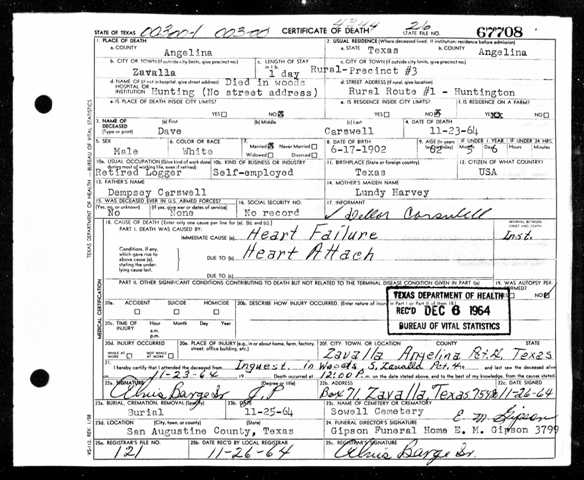 STATE OF TEXAS 00300-1 003-00 CERTIFICATE OF DEATH 4344 26 STATE FILE NO. 67708
1. PLACE OF DEATH 2. USUAL RESIDENCE (Where deceased lived. If institution: residence before admission)
a. COUNTY Angelina a. STATE Texas b. COUNTY Angelina
b. CITY OR TOWN (If outside city limits, give precinct no.) c. LENGTH OF STAY in 1 b. c. CITY OR TOWN (If outside city limits, give precinct no.)
Zavalla 1 day Rural-Precinct #3
d. NAME OF (If not in hospital, give street address) Died in woods d. STREET ADDRESS (If rural, give location)
HOSPITAL OR INSTITUTION Hunting (No street address) Rural Route #1 - Huntington
e. IS PLACE OF DEATH INSIDE CITY LIMITS? e. IS RESIDENCE INSIDE CITY LIMITS? f. IS RESIDENCE ON A FARM?
YES NO YES NO YES NO
3. NAME OF DECEASED (Type or print) (a) First (b) Middle (c) Last 4. DATE OF DEATH
Dave Carswell 11-23-64
5. SEX 6. COLOR OR RACE 7. Married Never Married 8. DATE OF BIRTH
Male White Widowed Divorced 6-17-1902 62 5 6
10a. USUAL OCCUPATION (Give kind of work done during most of working life, even if retired) 10b. KIND OF BUSINESS OR INDUSTRY 11. BIRTHPLACE (State or foreign country) 12. CITIZEN OF WHAT COUNTRY?
Retired Logger Self-employed Texas USA
13. FATHER'S NAME 14. MOTHER'S MAIDEN NAME
Dempsey Carswell Lundy Harvey
15. WAS DECEASED EVER IN U.S. ARMED FORCES? 16. SOCIAL SECURITY NO. 17. INFORMANT
(Yes, no, or unknown) (If yes, give war or dates of service)
No None No record
18. CAUSE OF DEATH (Enter only one cause per line for (a), (b), and (c).) INTERVAL BETWEEN ONSET AND DEATH
PART I. DEATH WAS CAUSED BY:
IMMEDIATE CAUSE (a) Heart Failure Inst.
Conditions, if any, which gave rise to above cause (a), stating the underlying cause last. DUE TO (b) Heart Attach
DUE TO (c)
PART II. OTHER SIGNIFICANT CONDITIONS CONTRIBUTING TO DEATH BUT NOT RELATED TO THE TERMINAL DISEASE CONDITION GIVEN IN PART I(a) 19. WAS AUTOPSY PERFORMED?
YES NO
20a. ACCIDENT SUICIDE HOMICIDE 20b. DESCRIBE HOW INJURY OCCURRED. (Enter nature of injury in Part I or Part II of item 18.)
TEXAS DEPARTMENT OF HEALTH
REC'D DEC 6 1964
BUREAU OF VITAL STATISTICS
20c. TIME OF INJURY Hour Month Day Year
a.m.
p.m.
20d. INJURY OCCURRED 20e. PLACE OF INJURY (e.g., in or about home, farm, factory, street, office building, etc.) 20f. CITY, TOWN, OR LOCATION COUNTY STATE
WHILE AT WORK NOT WHILE AT WORK Zavalla Angelina Texas
21. Inquest in Woods, S. Zavalla
11-23-64 Death occurred at 12:00 P.m. on the date stated above, and to the best of my knowledge, from the causes stated.
22a. SIGNATURE (Degree or title) 22b. ADDRESS 22c. DATE SIGNED
J.P. Box 71, Zavalla, Texas 11-26-64
23a. BURIAL, CREMATION, REMOVAL (Specify) 23b. DATE 23c. NAME OF CEMETERY OR CREMATORY
Burial 11-25-64 Sowell Cemetery E. M. Gipson
23d. LOCATION (City, town, or county) (State) 24. FUNERAL DIRECTOR'S SIGNATURE
San Augustine County, Texas Gipson Funeral Home E. M. Gipson 3799
25a. REGISTRAR'S FILE NO. 25b. DATE REC'D BY LOCAL REGISTRAR 25c. REGISTRAR'S SIGNATURE
121 11-26-64
TEXAS DEPARTMENT OF HEALTH—BUREAU OF VITAL STATISTICS
MEDICAL CERTIFICATION